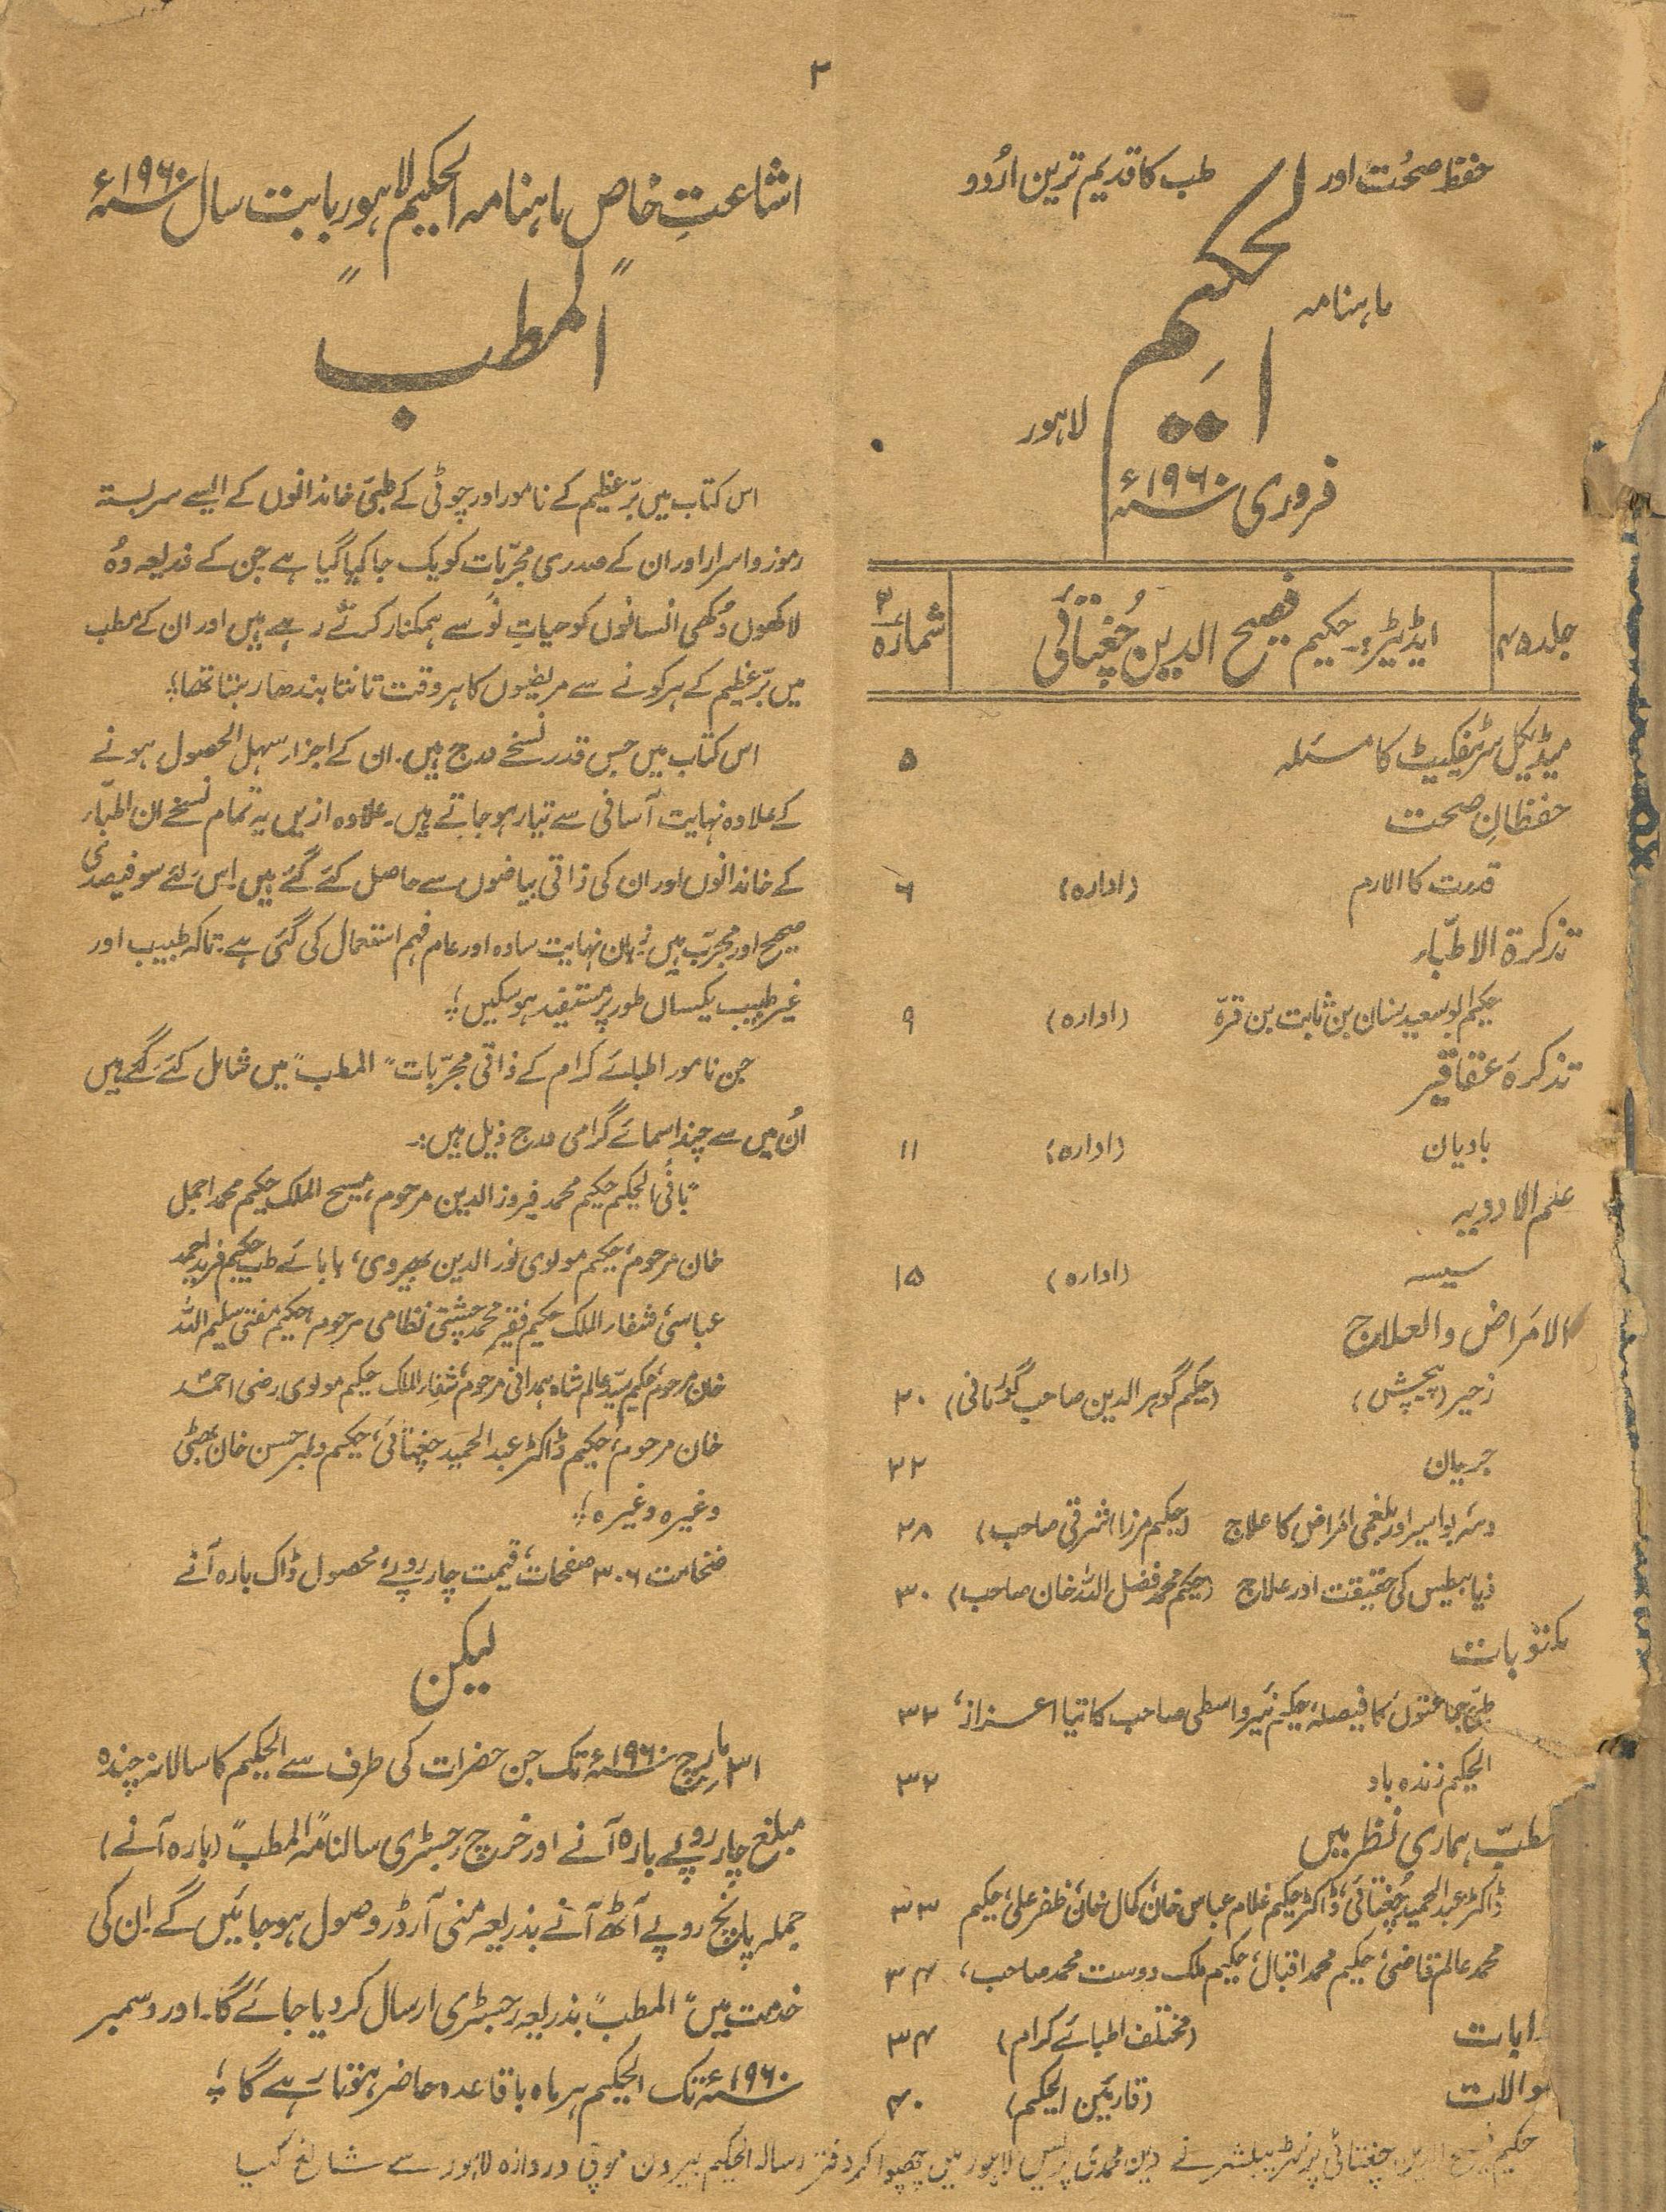 ۲
حفظِ صحُت اور طب کا قدیم ترین اُردو
ماہنامہ
الحکیم
لاہور
فروری ۱۹۶۰ء
جلد ۴۵
ایڈیٹر:۔ حکیم فصیح الدین چُغتائی
شمارہ ۲
میڈیکل سرٹیفکیٹ کا مسئلہ ۵
حفظانِ صحت
قدرت کا الارم (ادارہ) ۶
تذکرۃ الاطبّاء
حکیم ابو سعید سنان بن ثابت بن قرّہ (ادارہ) ۹
تذکرۂ عقاقیر
بادیان (ادارہ) ۱۱
علم الادویہ
سیسہ (ادارہ) ۱۵
الامَراض والعلاج
زحیر (پیچش) (حکیم گوہر الدین صاحب گورمانی) ۲۰
جریان ۲۲
دمہ بواسیر اور بلغمی امَراض کا علاج (حکیم مرزا اشرقی صاحب) ۲۸
ذیابیطیس کی حقیقت اور علاج (حکیم محمد فضل اللہ خان صاحب) ۳۰
مکتوبات
طبّی جماعتوں کا فیصلہ، حکیم نیّر واسطی صاحب کا نیا اعزاز، ۳۲
الحکیم زندہ باد ۳۲
مطبّ ہماری نظر میں
ڈاکٹر عبدالحمید چُغتائی، ڈاکٹر حکیم غلام عباس خان، کمال خان، ظفر علی، حکیم ۳۳
محمد عالم قاضی، حکیم محمد اقبال، حکیم ملک دوست محمد صاحب، ۳۴
ابات (مختلف اطبائے کرام) ۳۴
والات (قارئین الحکیم) ۴۰
اشاعتِ خاص ماہنامہ الحکیم لاہور بابت سال ۱۹۶۰ء
"المطب"
اس کتاب میں برّعظیم کے نامور اور چوٹی کے طبّی خاندانوں کے ایسے سربستہ
رموز و اسرار اور ان کے صدری مجرّبات کو یک جا کیا گیا ہے جن کے ذریعہ وُہ
لاکھوں دُکھی انسانوں کو حیاتِ نَو سے ہمکنار کرتے رہے ہیں اور ان کے مطب
میں برّعظیم کے ہر کونے سے مریضوں کا ہر وقت تانتا بندھا رہتا تھا؛
اس کتاب میں جس قدر نسخے درج ہیں۔ ان کے اجزاء سہل الحصول ہونے
کے علاوہ نہایت آسانی سے تیار ہو جاتے ہیں۔ علاوہ ازیں یہ تمام نسخے ان اطبّاء
کے خاندانوں اور ان کی ذاتی بیاضوں سے حاصل کئے گئے ہیں۔ اِس لئے سو فیصدی
صحیح اور مجرّب ہیں۔ زبان نہایت سادہ اور عام فہم استعمال کی گئی ہے۔ تاکہ طبیب اور
غیر طبیب یکساں طور پر مستفید ہو سکیں؛
جن نامور اطبائے کرام کے ذاتی مجرّبات "المطب" میں شامل کئے گئے ہیں
اُن میں سے چند اسمائے گرامی درج ذیل ہیں:۔
بانیٔ الحکیم حکیم محمد فیروز الدین مرحوم، مسیح الملک حکیم محمد اجمل
خان مرحوم، حکیم مولوی نور الدین بھیروی، بابائے طب حکیم فرید احمد
عباسی، شفاء الملک حکیم فقیر محمد چشتی نظامی مرحوم، حکیم مفتی سلیم اللہ
خان مرحوم، حکیم سیّد عالم شاہ ہمدانی مرحوم، شفاء الملک حکیم مولوی رضی احمد
خان مرحوم، حکیم ڈاکٹر عبدالحمید چغتائی، حکیم دلبر حسن خان بھٹی
وغیرہ وغیرہ؛
ضخامت ۳۰۶ صفحات، قیمت چار روپے، محصول ڈاک بارہ آنے
لیکن
۳۱ مارچ ۱۹۶۰ء تک جن حضرات کی طرف سے الحکیم کا سالانہ چندہ
مبلغ چار روپے بارہ آنے اور خرچ رجسٹری سالنامہ "المطب" (بارہ آنے)
جملہ پانچ روپے آٹھ آنے بذریعہ منی آرڈر وصول ہو جائیں گے۔ ان کی
خدمت میں "المطب" بذریعہ رجسٹری ارسال کر دیا جائے گا۔ اور دسمبر
۱۹۶۰ء تک الحکیم ہر ماہ باقاعدہ حاضر ہوتا رہے گا؛
حکیم فصیح الدین چغتائی پرنٹر پبلشر نے دین محمدی پریس لاہور میں چھپوا کر دفتر رسالہ الحکیم بیرون موچی دروازہ لاہور سے شائع کیا